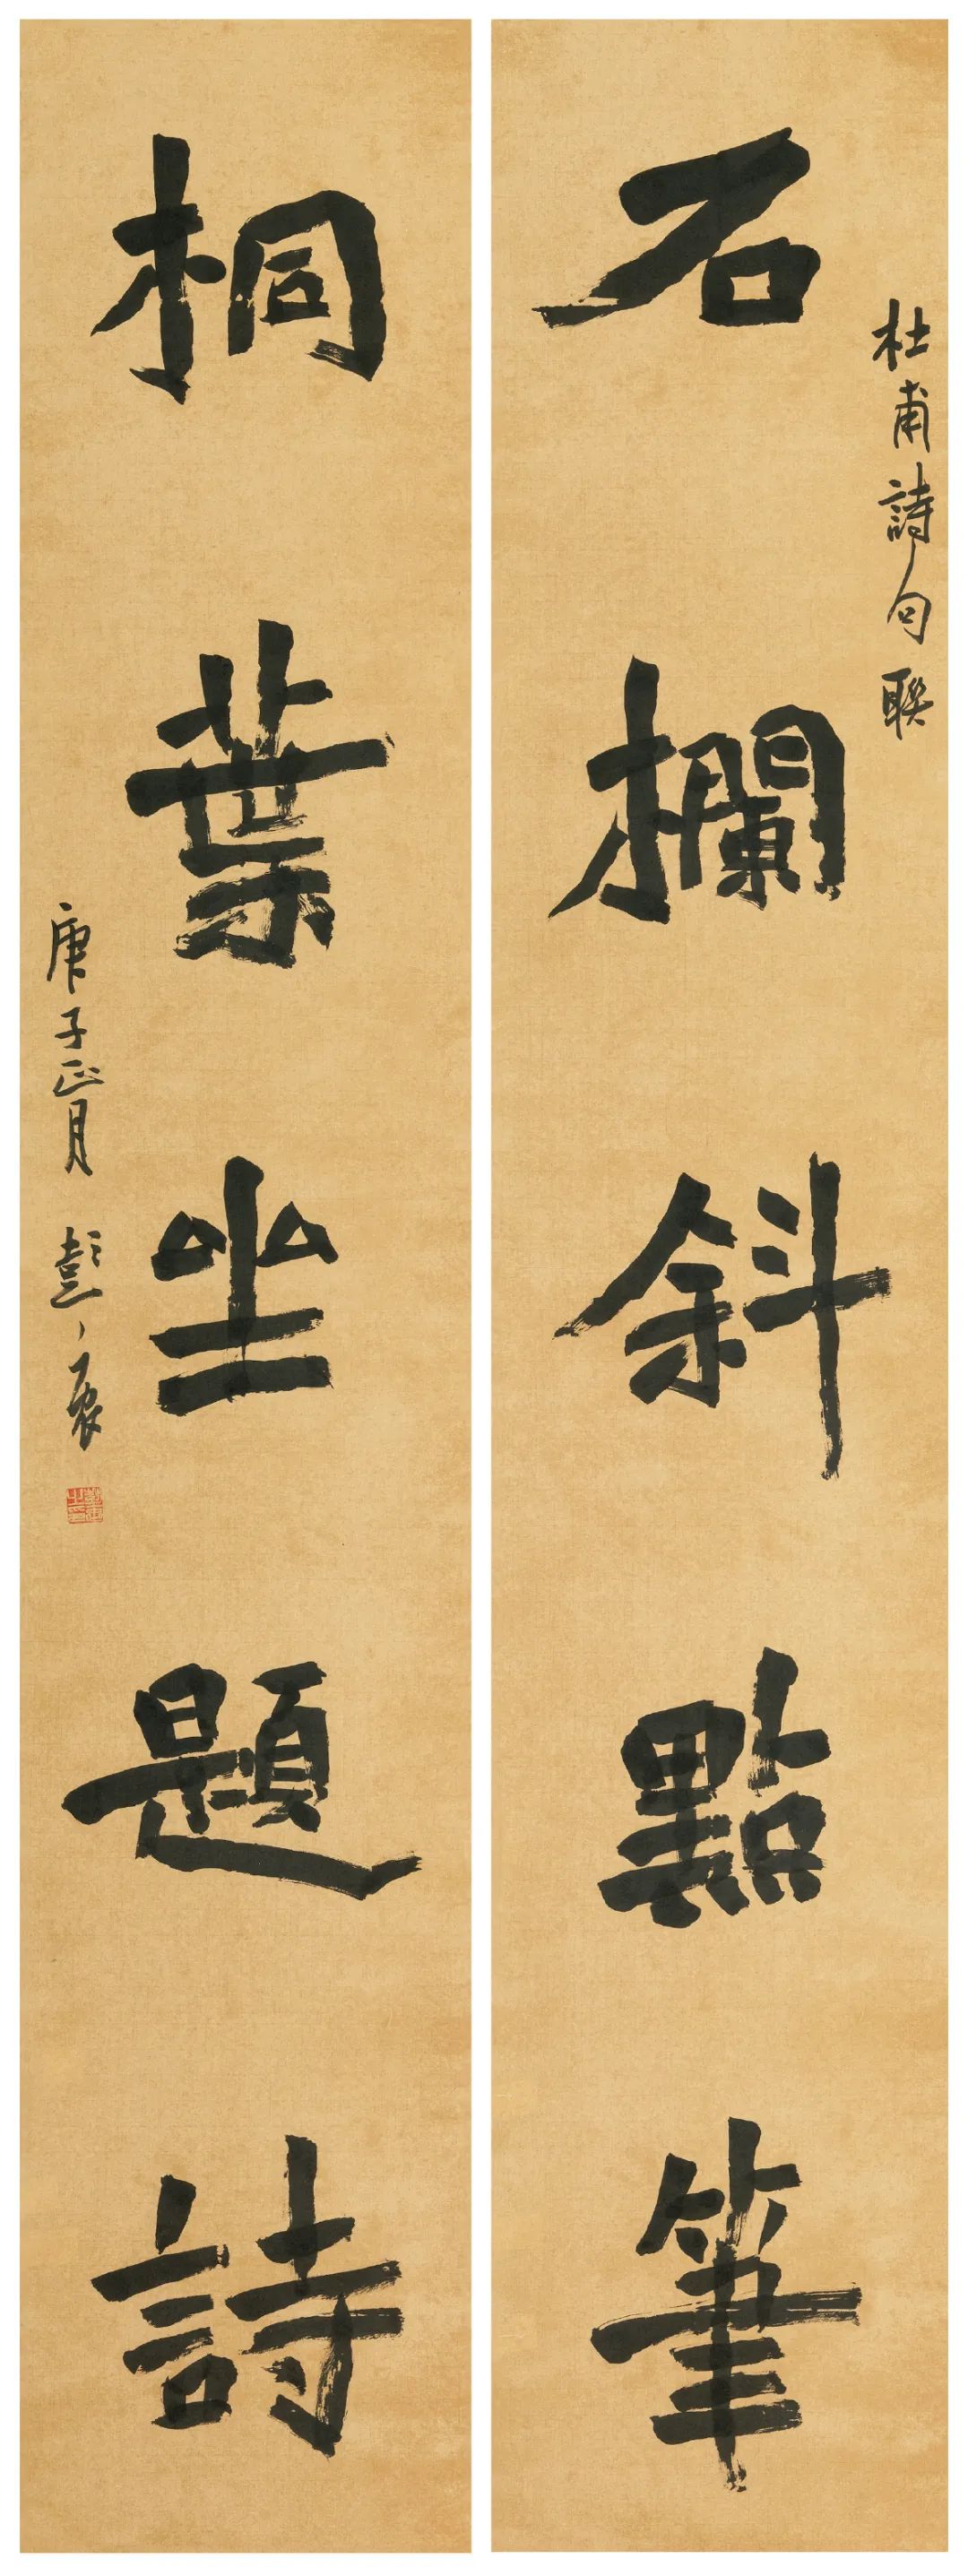 杜甫詩句聯
石欄斜點筆
桐葉坐題詩
庚子正月 彭